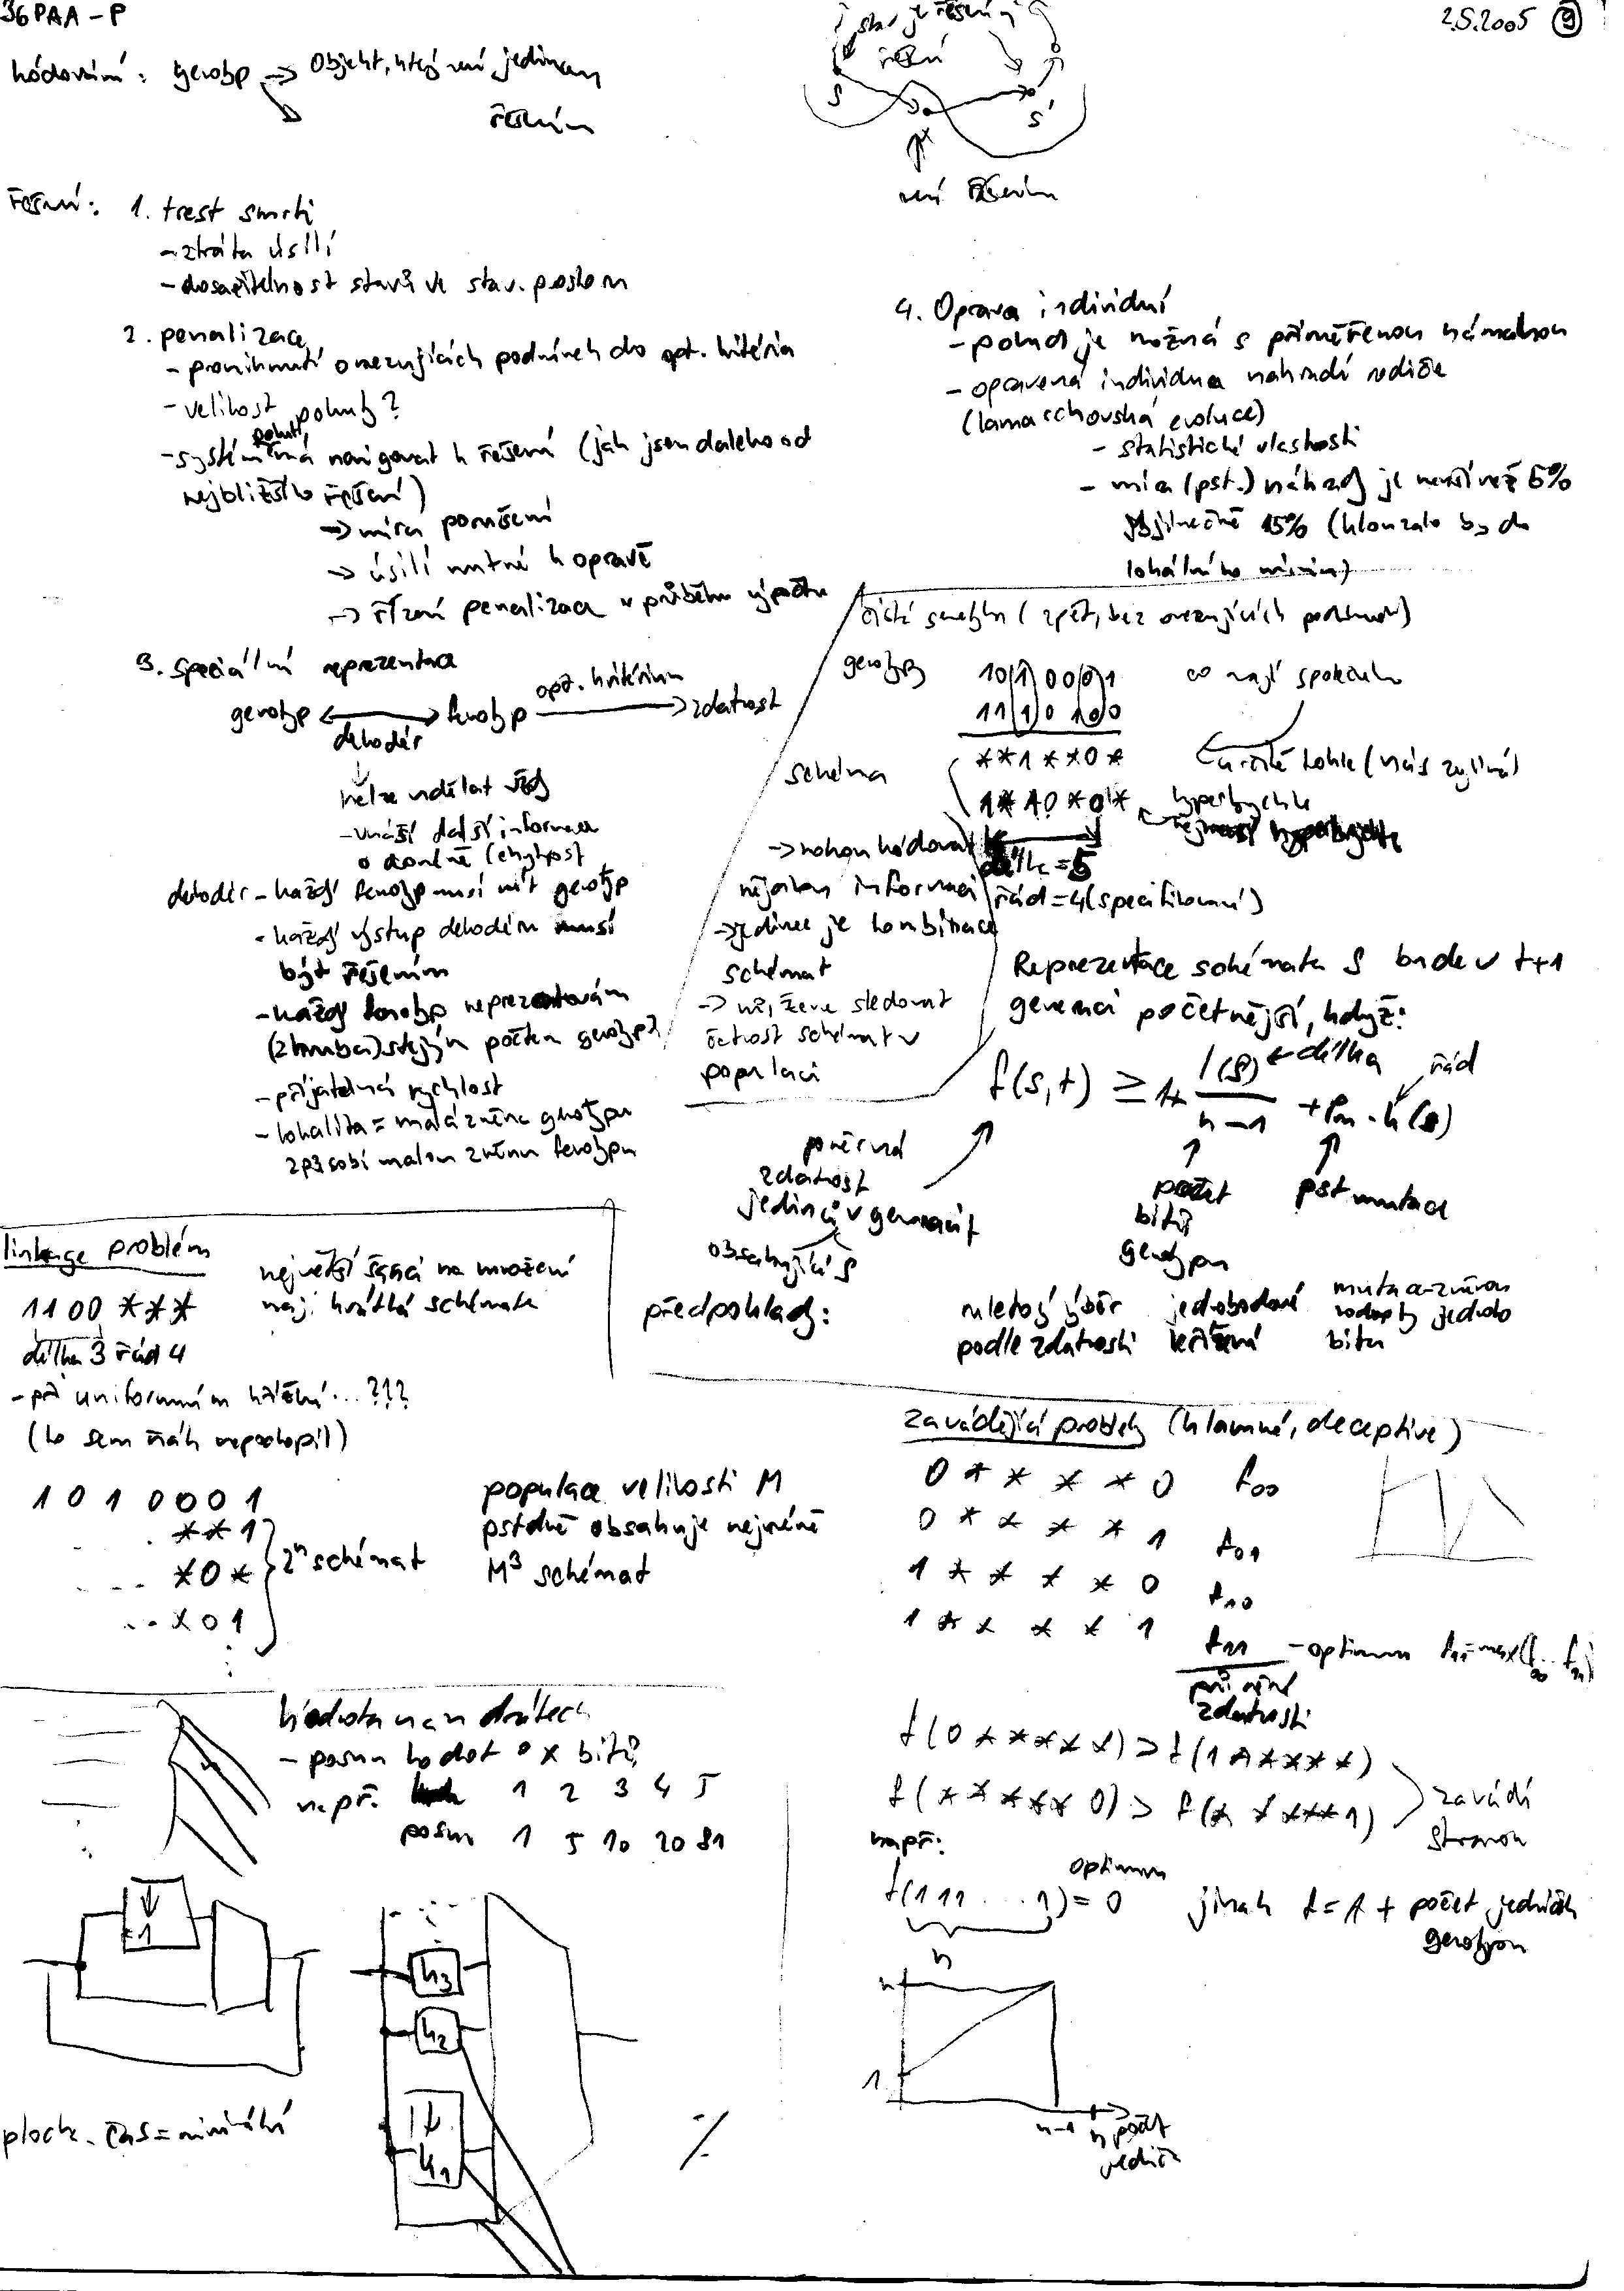 36PAA-P
2.5.2005 9
kódování: genotyp → Objekt, který není jedincem
řešením
stav je řešením
řešení
S
S'
není řešením
řešení: 1. trest smrti
- ztráta úsilí
- dosažitelnost stavů ve stav. prostoru
2. penalizace
- proniknutí omezujících podmínek do opt. kritéria
- velikost pokuty?
- systém pokut má navigovat k řešení (jak jsem daleko od
nejbližšího řešení)
→ míra porušení
→ úsilí nutné k opravě
→ řízení penalizace v průběhu výpočtu
3. speciální reprezentace
genotyp ↔ fenotyp opt. kritérium → zdatnost
dekodér
nelze udělat vždy
- vnáší další informaci
o doméně (chybost
dekodér - každý fenotyp musí mít genotyp
- každý výstup dekodéru musí
být řešením
- každý fenotyp reprezentován
(zhruba) stejným počtem genotypů
- přijatelná rychlost
- lokalita = malá změna genotypu
způsobí malou změnu fenotypu
4. Oprava individuí
- pokud je možná s přiměřenou námahou
- opravená individua nahradí rodiče
(lamarckovská evoluce)
- statistické vlastnosti
- míra (pst.) náhrady je menší než 5%
výjimečně 15% (klouzalo by do
lokálního minima)
čistá genetika (zpět, bez omezujících podmínek)
genotypy 1010001 co mají společného
1110100
schéma **1**0* určitě tohle (nás zajímá)
1*10*0* hyperkrychle
délka = 5
řád = 4 (specifikované)
→ mohou kódovat
nějakou informaci
→ jedinec je kombinace
schémat
→ můžeme sledovat
četnost schémat v
populaci
Reprezentace schémata S bude v t+1
generaci početnější, když:
f(S,t) ≥ 1+ l(S) ← délka / n-1 + Pm · k(S) řád
poměrná
zdatnost
jedinců v generaci t
obsahující S
počet
bitů
genotypu
pst mutace
předpoklady:
ruletový výběr
podle zdatnosti
jednobodové
křížení
mutace-změnou
hodnoty jednoho
bitu
linkage problém
největší šanci na množení
mají krátká schémata
1100 ***
délka 3 řád 4
- při uniformním křížení...???
(to sem ňák nepochopil)
1 0 1 0 0 0 1
. **1
... *0*
.. *01
2ⁿ schémat
populace velikosti M
pstdně obsahuje nejméně
M³ schémat
zavádějící problémy (klamné, deceptive)
0 * * * * 0 f00
0 * * * * 1 f01
1 * * * * 0 f10
1 * * * * 1 f11 - optimum f11=max(f00 .. f11)
průměrné
zdatnosti
f(0*****) > f(1*****)
f(*****0) > f(*****1)
zavádí
stranou
např:
f(111...1) = 0 optimum jinak f = 1 + počet jedniček
genotypu
n
n
1
n-1 n počet
jedniček
hodnota na n drátech
- posun hodnot o x bitů
např. 1 2 3 4 5
posun 1 5 10 20 81
1
k3
k2
k1
plocha · čas = minimální
·/·